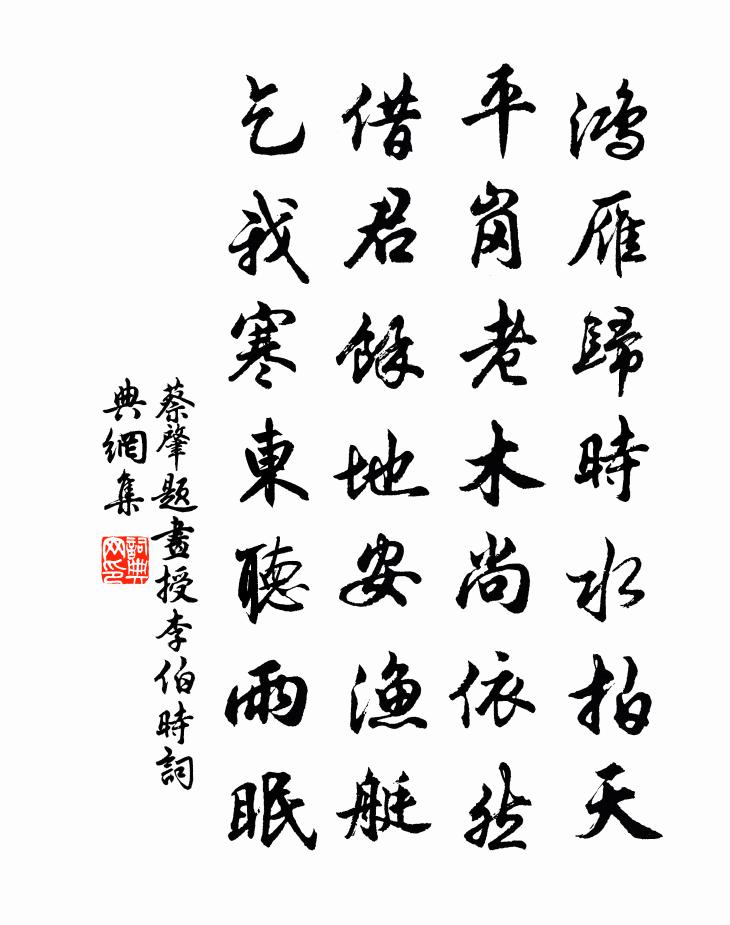 鴻雁歸時水拍天
平崗老木尚依然
借君餘地安漁艇
乞我寒東聽雨眠
蔡肇題畫授李伯時詞
典網集
詞典网印